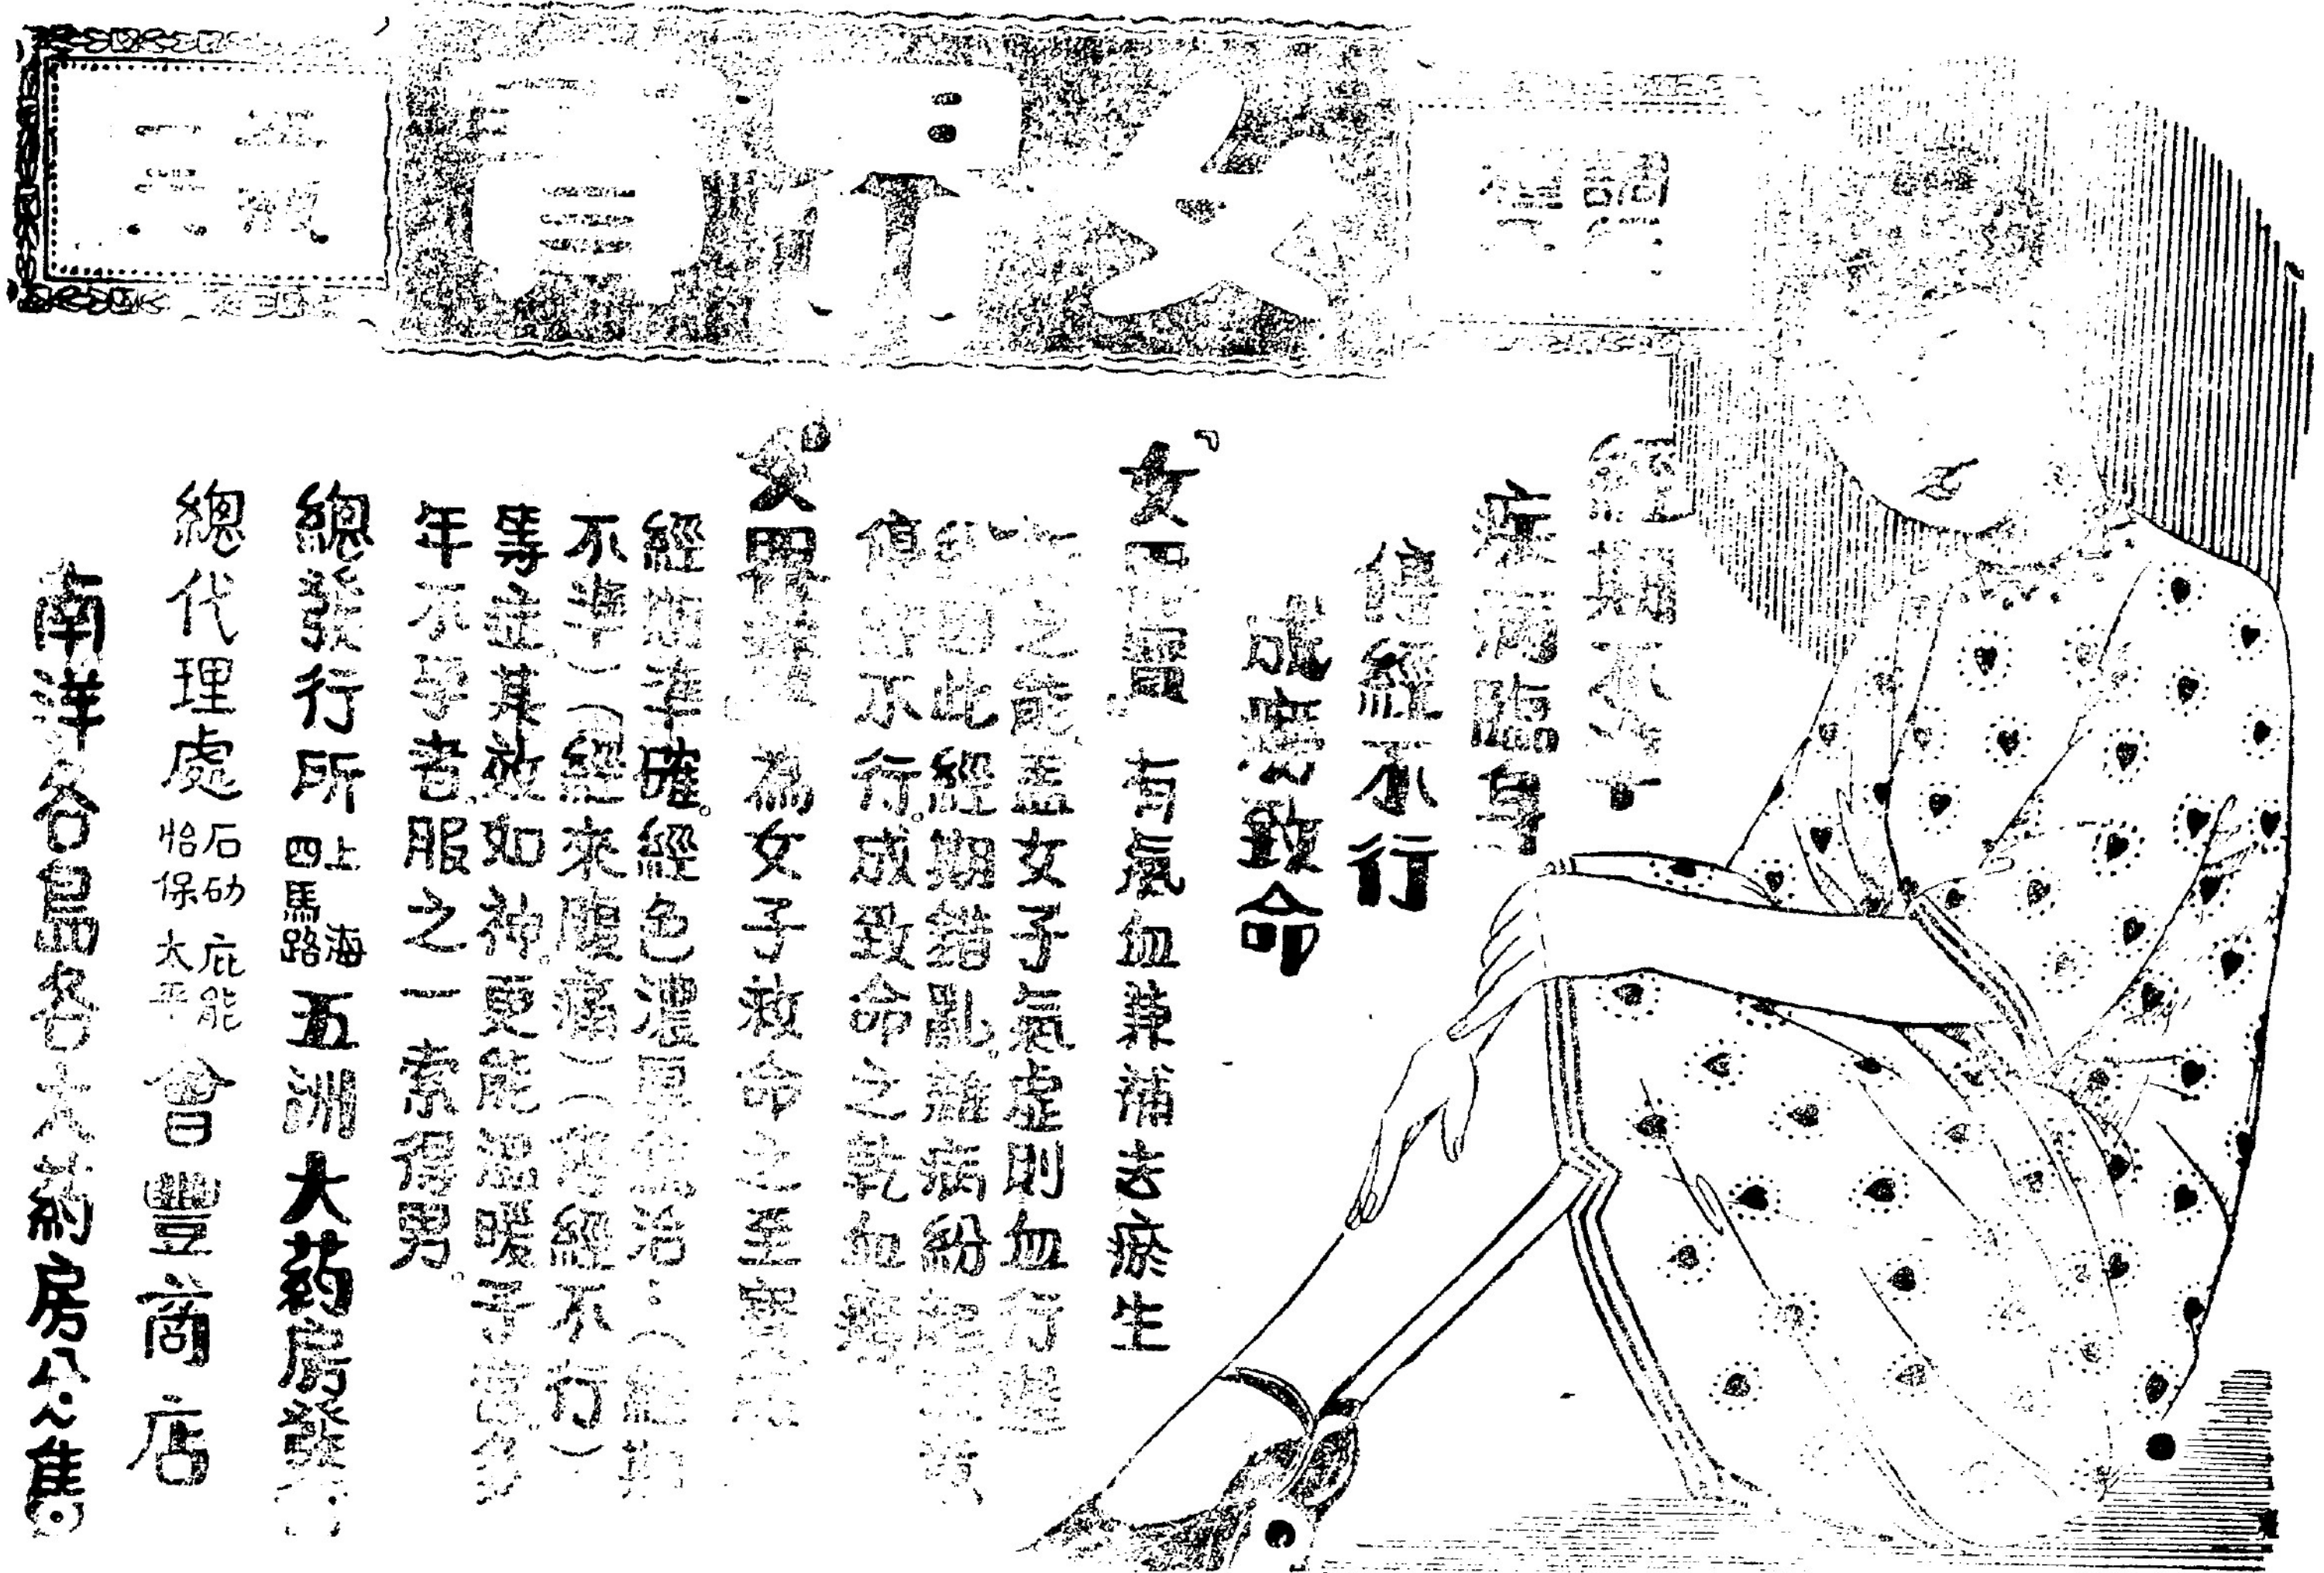 調經
女界寶
經期不準
疾病臨身
停經不行
成癆致命
『女界寶』有氣血兼補去瘀生
新之能蓋女子氣虛則血行遲
因此經期錯亂。雜病紛起
停經不行。成致命之乾血癆。
『女界寶』為女子救命之至寶
經期準確。經色濃厚統治:(經期
不準)(經來腹痛)(停經不行)
等症其效如神。更能溫暖子宮。多
年不孕者。服之一索得男。
總發行所 上海四馬路 五洲大葯房發行
總代理處 石叻 庇能 怡保 太平 會豐商店
南洋各島各大葯房公司均售